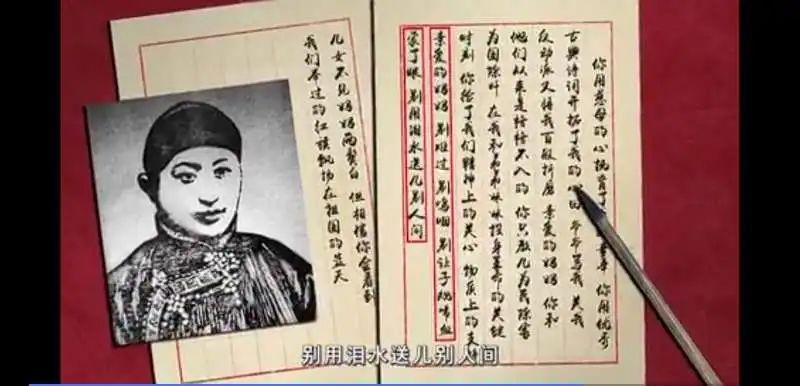 你用慈母的心抚育了童年 你用优秀
古典诗词开拓了我的心田 爷爷骂我 关我
反动派又将我百般折磨 亲爱的妈妈 你和
他们从来是格格不入的 你只教儿为民除害
为国除奸 在我和弟弟妹妹投身革命的关键
时刻 你给了我们精神上的关心 物质上的支
亲爱的妈妈 别难过 别呜咽 别让子规啼血
蒙了眼 别用泪水送儿别人间
儿女不见妈妈两鬓白 但相信你会看到
我们举过的红旗飘扬在祖国的蓝天
别用泪水送儿别人间